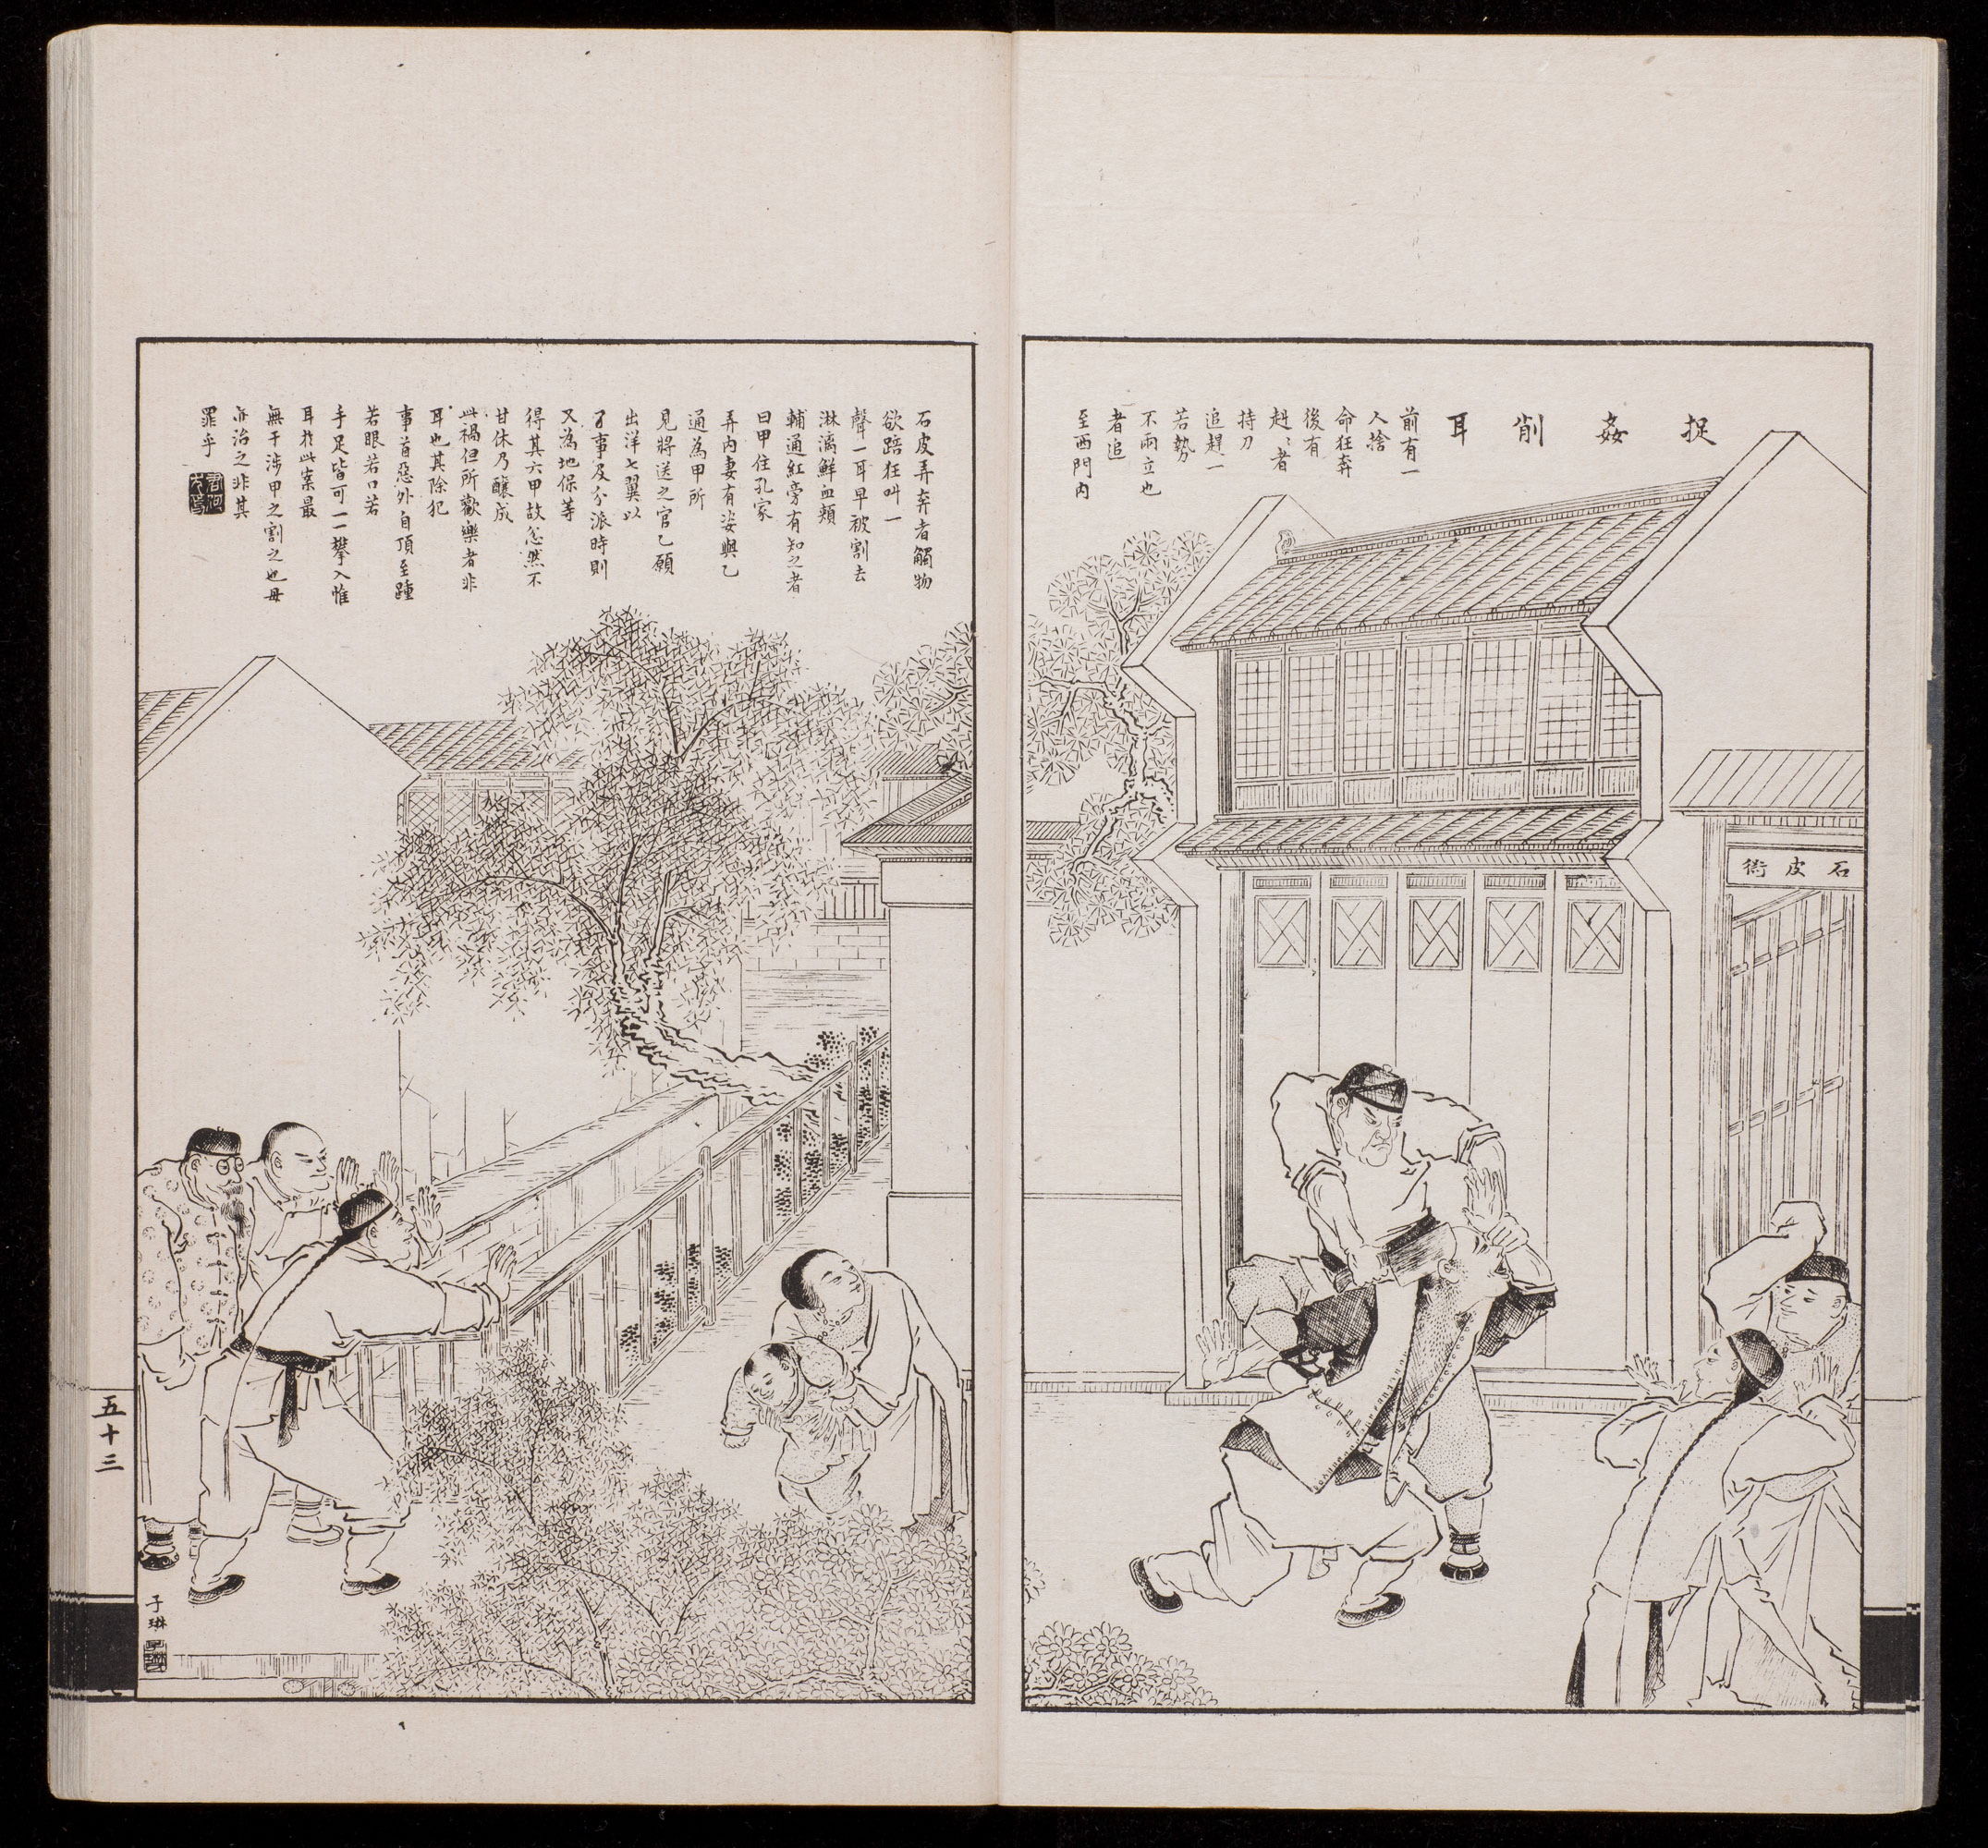 捉姦削耳
前有一
人捨
命狂奔
後有
赶赶者
持刀
追趕一
若勢
不兩立也
者追
至西門內
石皮弄奔者觸物
欲踣狂叫一
聲一耳早被割去
淋漓鮮血頰
輔通紅旁有知之者
曰甲住孔家
弄內妻有姿與乙
通為甲所
見將送之官乙願
出洋七翼以
了事及分派時則
又為地保等
得其六甲故忿然不
甘休乃釀成
此禍但所歡樂者非
耳也其除犯
事首惡外自頂至踵
若眼若口若
手足皆可一一攀入惟
耳於此案最
無干涉甲之割之也毋
亦治之非其
罪乎
石皮衖
五十三
子琳